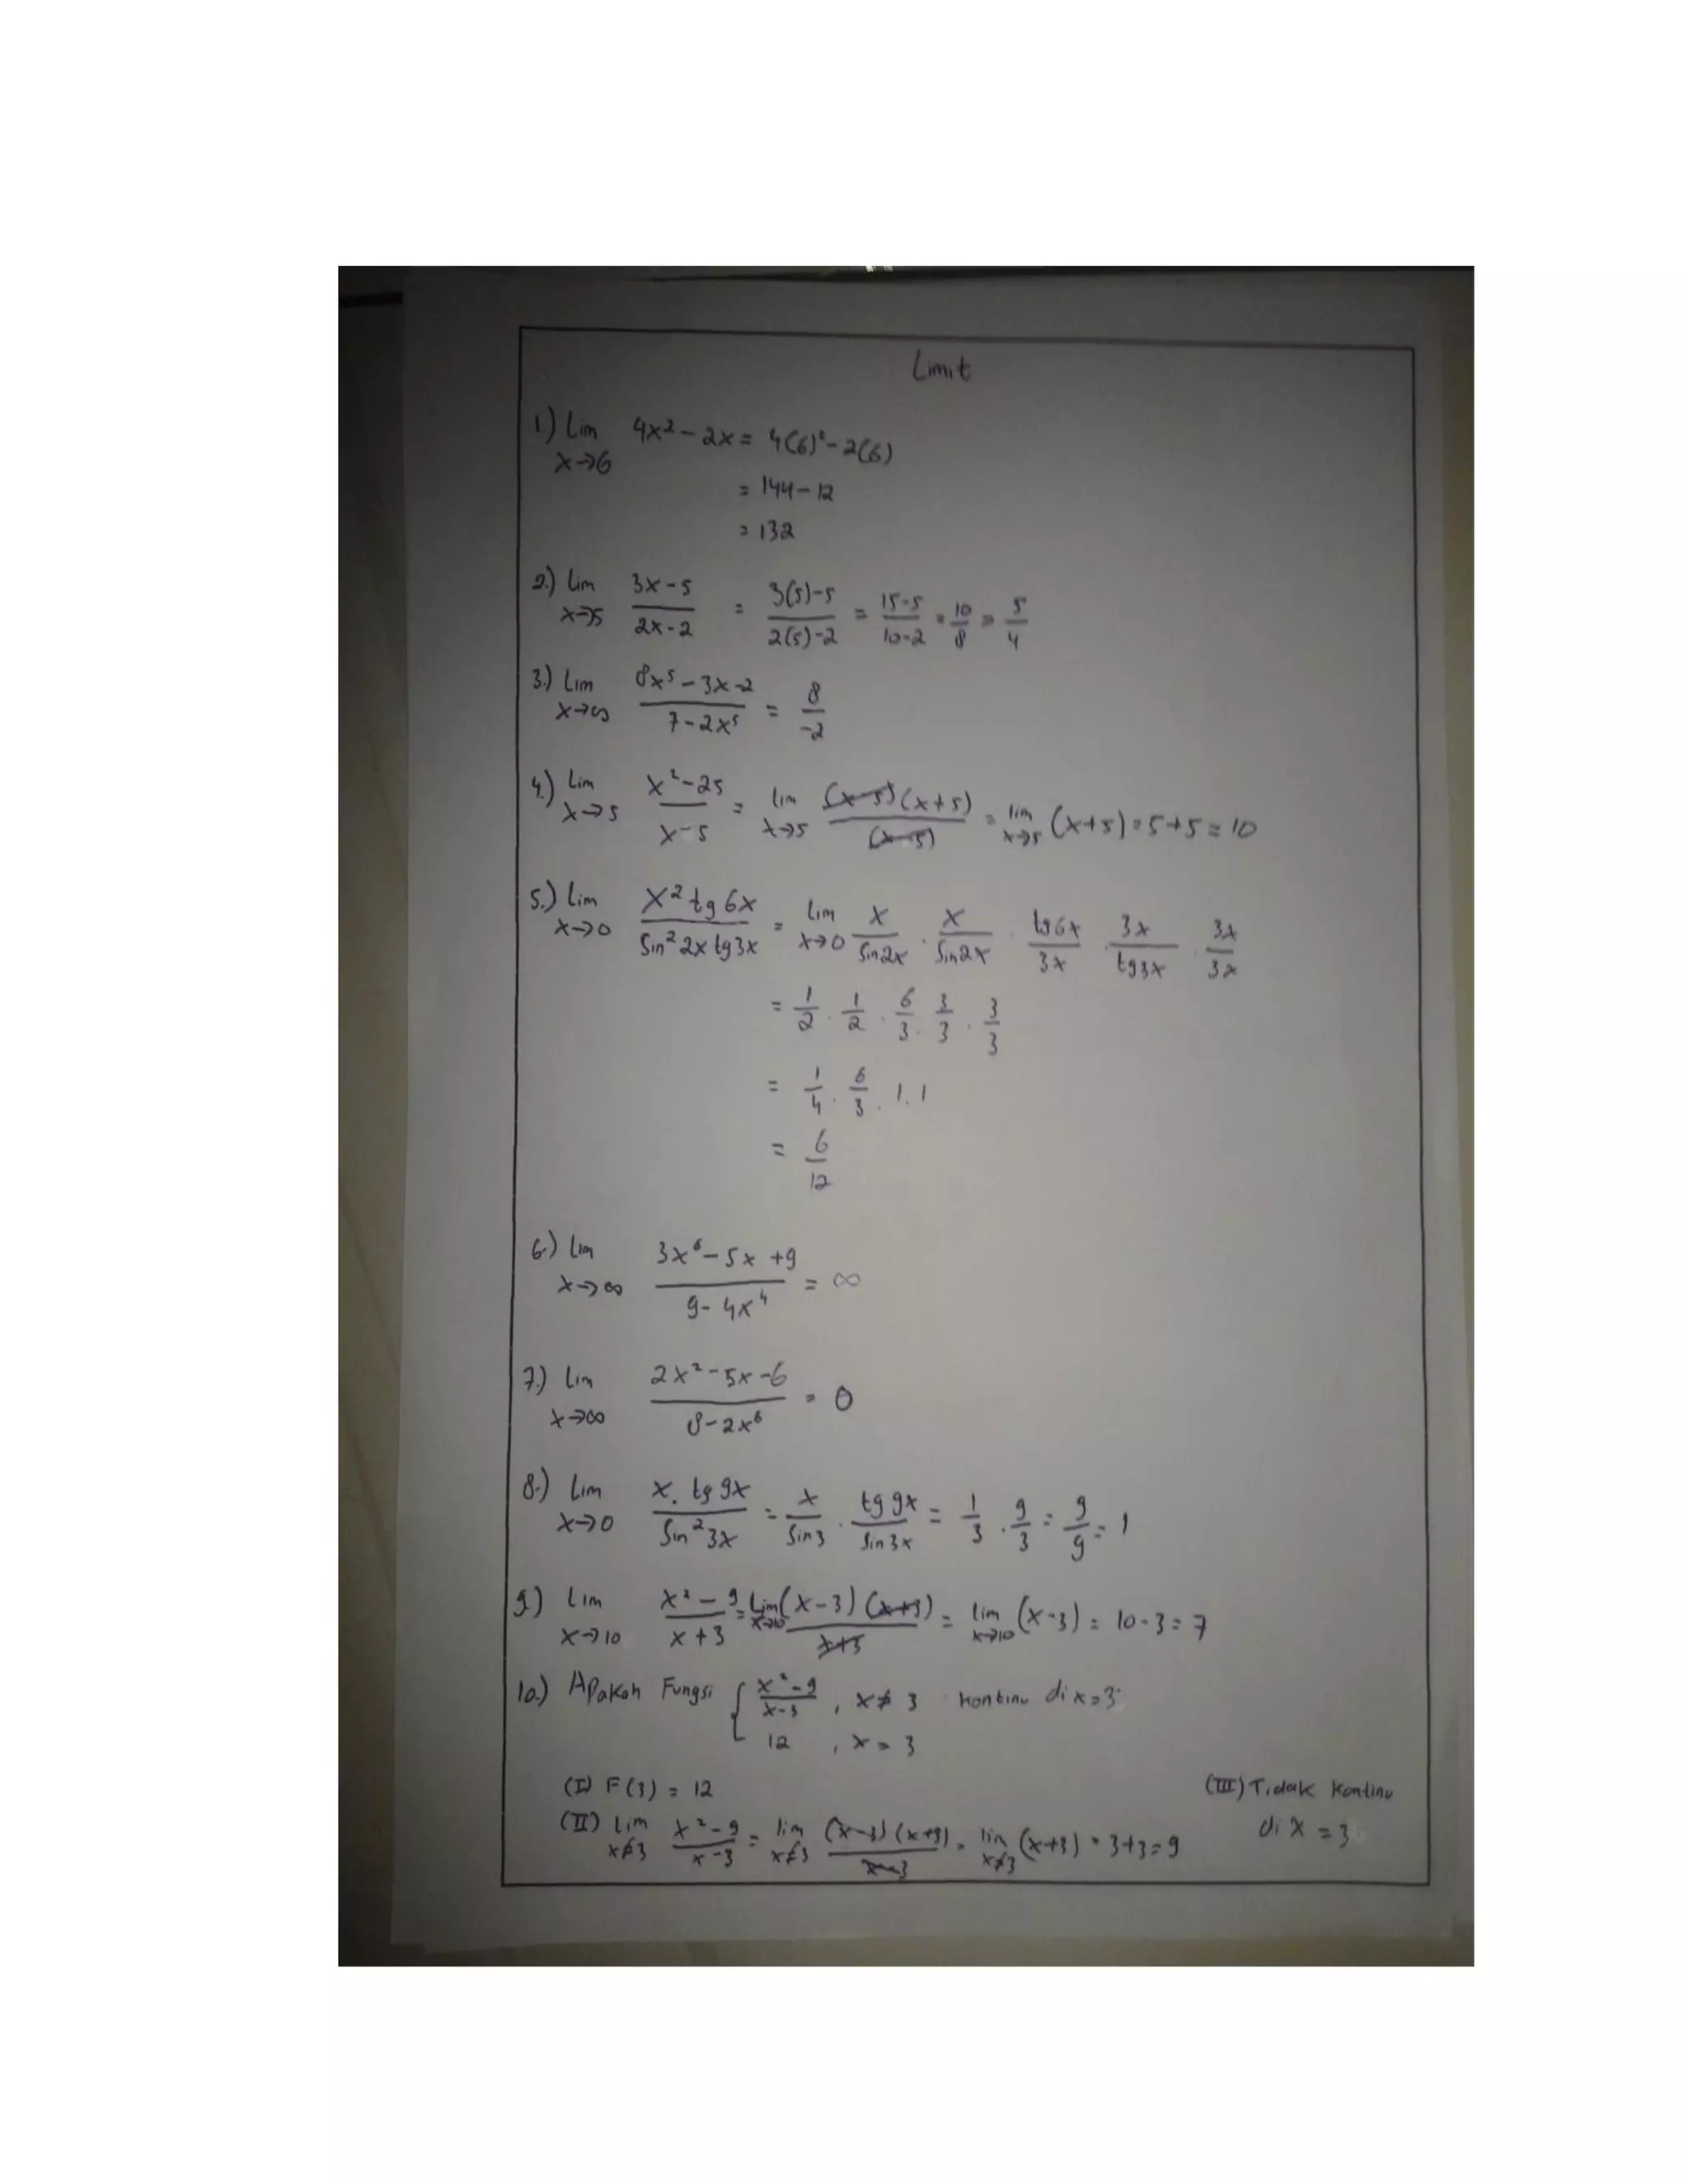 Limit
1) Lim x→6 4x² - 2x = 4(6)² - 2(6)
= 144 - 12
= 132
2.) lim x→5 (3x - 5)/(2x - 2) = (3(5) - 5)/(2(5) - 2) = (15 - 5)/(10 - 2) = 10/8 = 5/4
3.) Lim x→∞ (8x⁵ - 3x - 2)/(7 - 2x⁵) = 8/-2
4.) Lim x→5 (x² - 25)/(x - 5) = lim x→5 ((x - 5)(x + 5))/(x - 5) = lim x→5 (x + 5) = 5 + 5 = 10
5.) Lim x→0 (x² tg 6x)/(Sin² 2x tg 3x) = Lim x→0 x/Sin 2x . x/Sin 2x . tg 6x/3x . 3x/tg 3x . 3x/3x
= 1/2 . 1/2 . 6/3 . 3/3 . 3/3
= 1/4 . 6/3 . 1 . 1
= 6/12
6.) Lim x→∞ (3x⁶ - 5x + 9)/(9 - 4x⁴) = ∞
7.) Lim x→∞ (2x² - 5x - 6)/(8 - 2x⁶) = 0
8.) Lim x→0 (x . tg 9x)/(Sin² 3x) = x/Sin 3 . tg 9x/Sin 3x = 1/3 . 9/3 = 9/9 = 1
9.) Lim x→10 (x² - 9)/(x + 3) = Lim x→10 ((x - 3)(x + 3))/(x + 3) = lim x→10 (x - 3) = 10 - 3 = 7
10.) Apakah Fungsi { (x² - 9)/(x - 3) , x ≠ 3 kontinu di x = 3
12 , x = 3
(I) F(3) = 12
(II) Lim x≠3 (x² - 9)/(x - 3) = lim x≠3 ((x - 3)(x + 3))/(x - 3) = lim x≠3 (x + 3) = 3 + 3 = 9
(III) Tidak kontinu
di x = 3